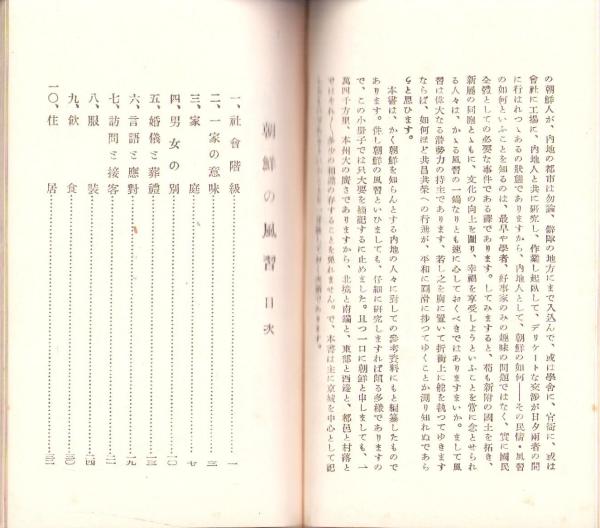 の朝鮮人が、内地の都市は勿論、僻陬の地方にまで入込んで、或は學舍に、官衙に、或は
會社に工場に、内地人と共に研究し、作業し起臥して、デリケートな交渉が日夕兩者の間
に行はれつゝあるの狀態でありますから、内地人として、朝鮮の如何――その民情・風習
の如何といふことを知るのは、最早や學者、好事家のみの趣味の問題ではなく、實に國民
全體としての必要な事件である譯であります。してみますると、苟も新附の國土を拓き、
新屬の同胞とともに、文化の向上を圖り、幸福を享受しようといふことを常に念とせられ
る人々は、かゝる風習の一端なりとも速に心しておくべきではありますまいか。まして風
習は偉大なる潜勢力の持主であります、若し之を胸に置いて折衝上に舵を執つてゆきます
ならば、如何ほど共昌共榮への行進が、平和に圓滑に捗つてゆくことか測り知れぬであら
うと思ひます。
本書は、かく朝鮮を知らんとする内地の人々に對しての參考資料にもと編纂したもので
あります。併し朝鮮の風習といひましても、仔細に研究しますれば頗る多樣でありますの
で、この小册子では只大要を摘記するに止めました。且つ一口に朝鮮と申しましても、一
萬四千方里、本州大の廣さでありますから、北境と南端と、東部と西邊と、都邑と村落と
ではそれ〲多少の相違の存することを免れません。で、本書は主に京城を中心として記
朝鮮の風習 目次
一、社會階級……一
二、一家の意味……三
三、家庭……七
四、男女の別……一〇
五、婚儀と葬禮……一三
六、言語と應對……一九
七、訪問と接客……二一
八、服裝……二四
九、飮食……三〇
一〇、住居……三二